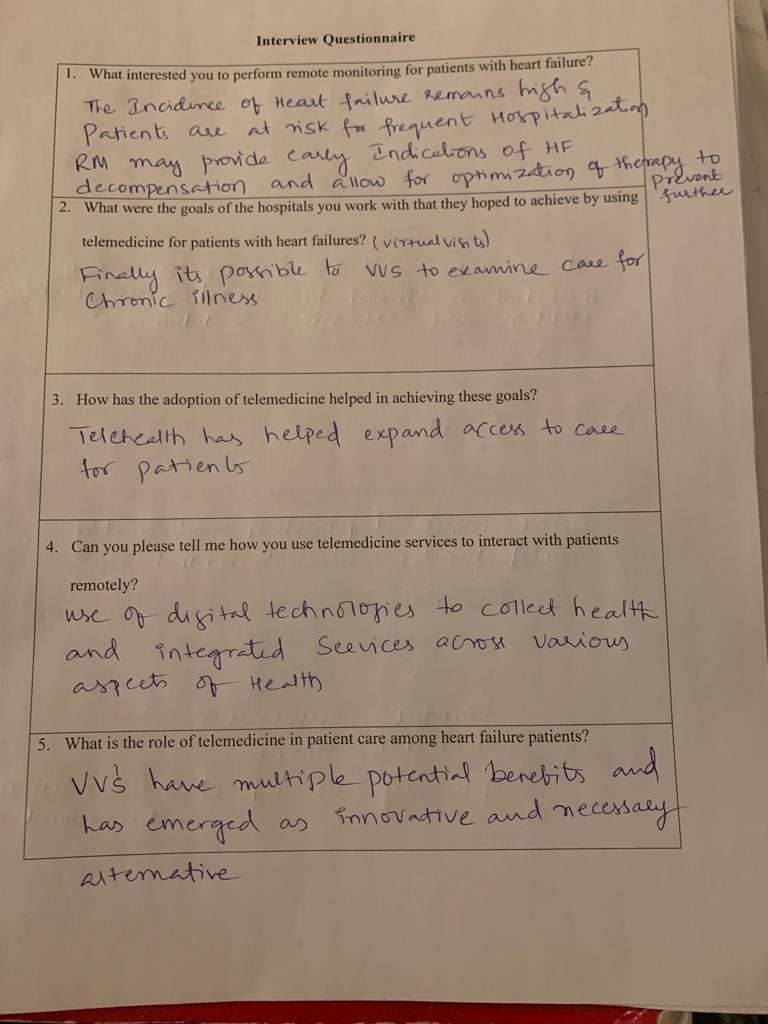 Interview Questionnaire
1. What interested you to perform remote monitoring for patients with heart failure?
The Incidence of Heart failure remains high &
Patients are at risk for frequent Hospitalization
RM may provide early Indications of HF
decompensation and allow for optimization of therapy to
prevent
further
2. What were the goals of the hospitals you work with that they hoped to achieve by using
telemedicine for patients with heart failures? (virtual visits)
Finally its possible to VVS to examine care for
Chronic illness
3. How has the adoption of telemedicine helped in achieving these goals?
Telehealth has helped expand access to care
for patients
4. Can you please tell me how you use telemedicine services to interact with patients
remotely?
use of digital technologies to collect health
and integrated Services across various
aspects of Health
5. What is the role of telemedicine in patient care among heart failure patients?
VV's have multiple potential benefits and
has emerged as innovative and necessary
alternative